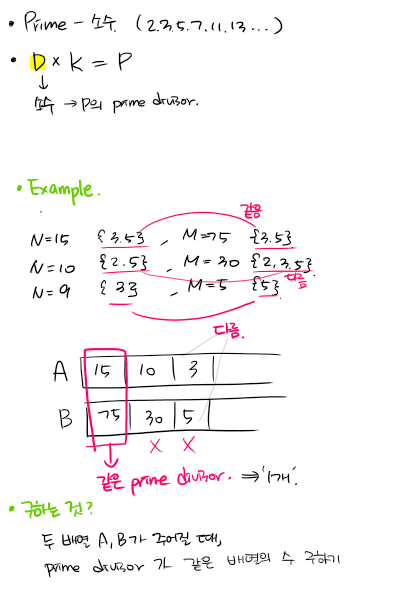 • Prime - 소수 (2.3.5.7.11.13...)
• D × K = P
↓
소수 → P의 prime divisor.
• Example.
같음
N=15 {3.5} , M=75 {3.5}
N=10 {2.5} , M=30 {2,3.5}
다름
N=9 {3} , M=5 {5}
다름.
A 15 | 10 | 3 |
B 75 | 30 | 5 |
X X
같은 prime divisor. ⇒ '1개'.
• 구하는 것?
두 배열 A, B가 주어질 때,
prime divisor 가 같은 배열의 수 구하기